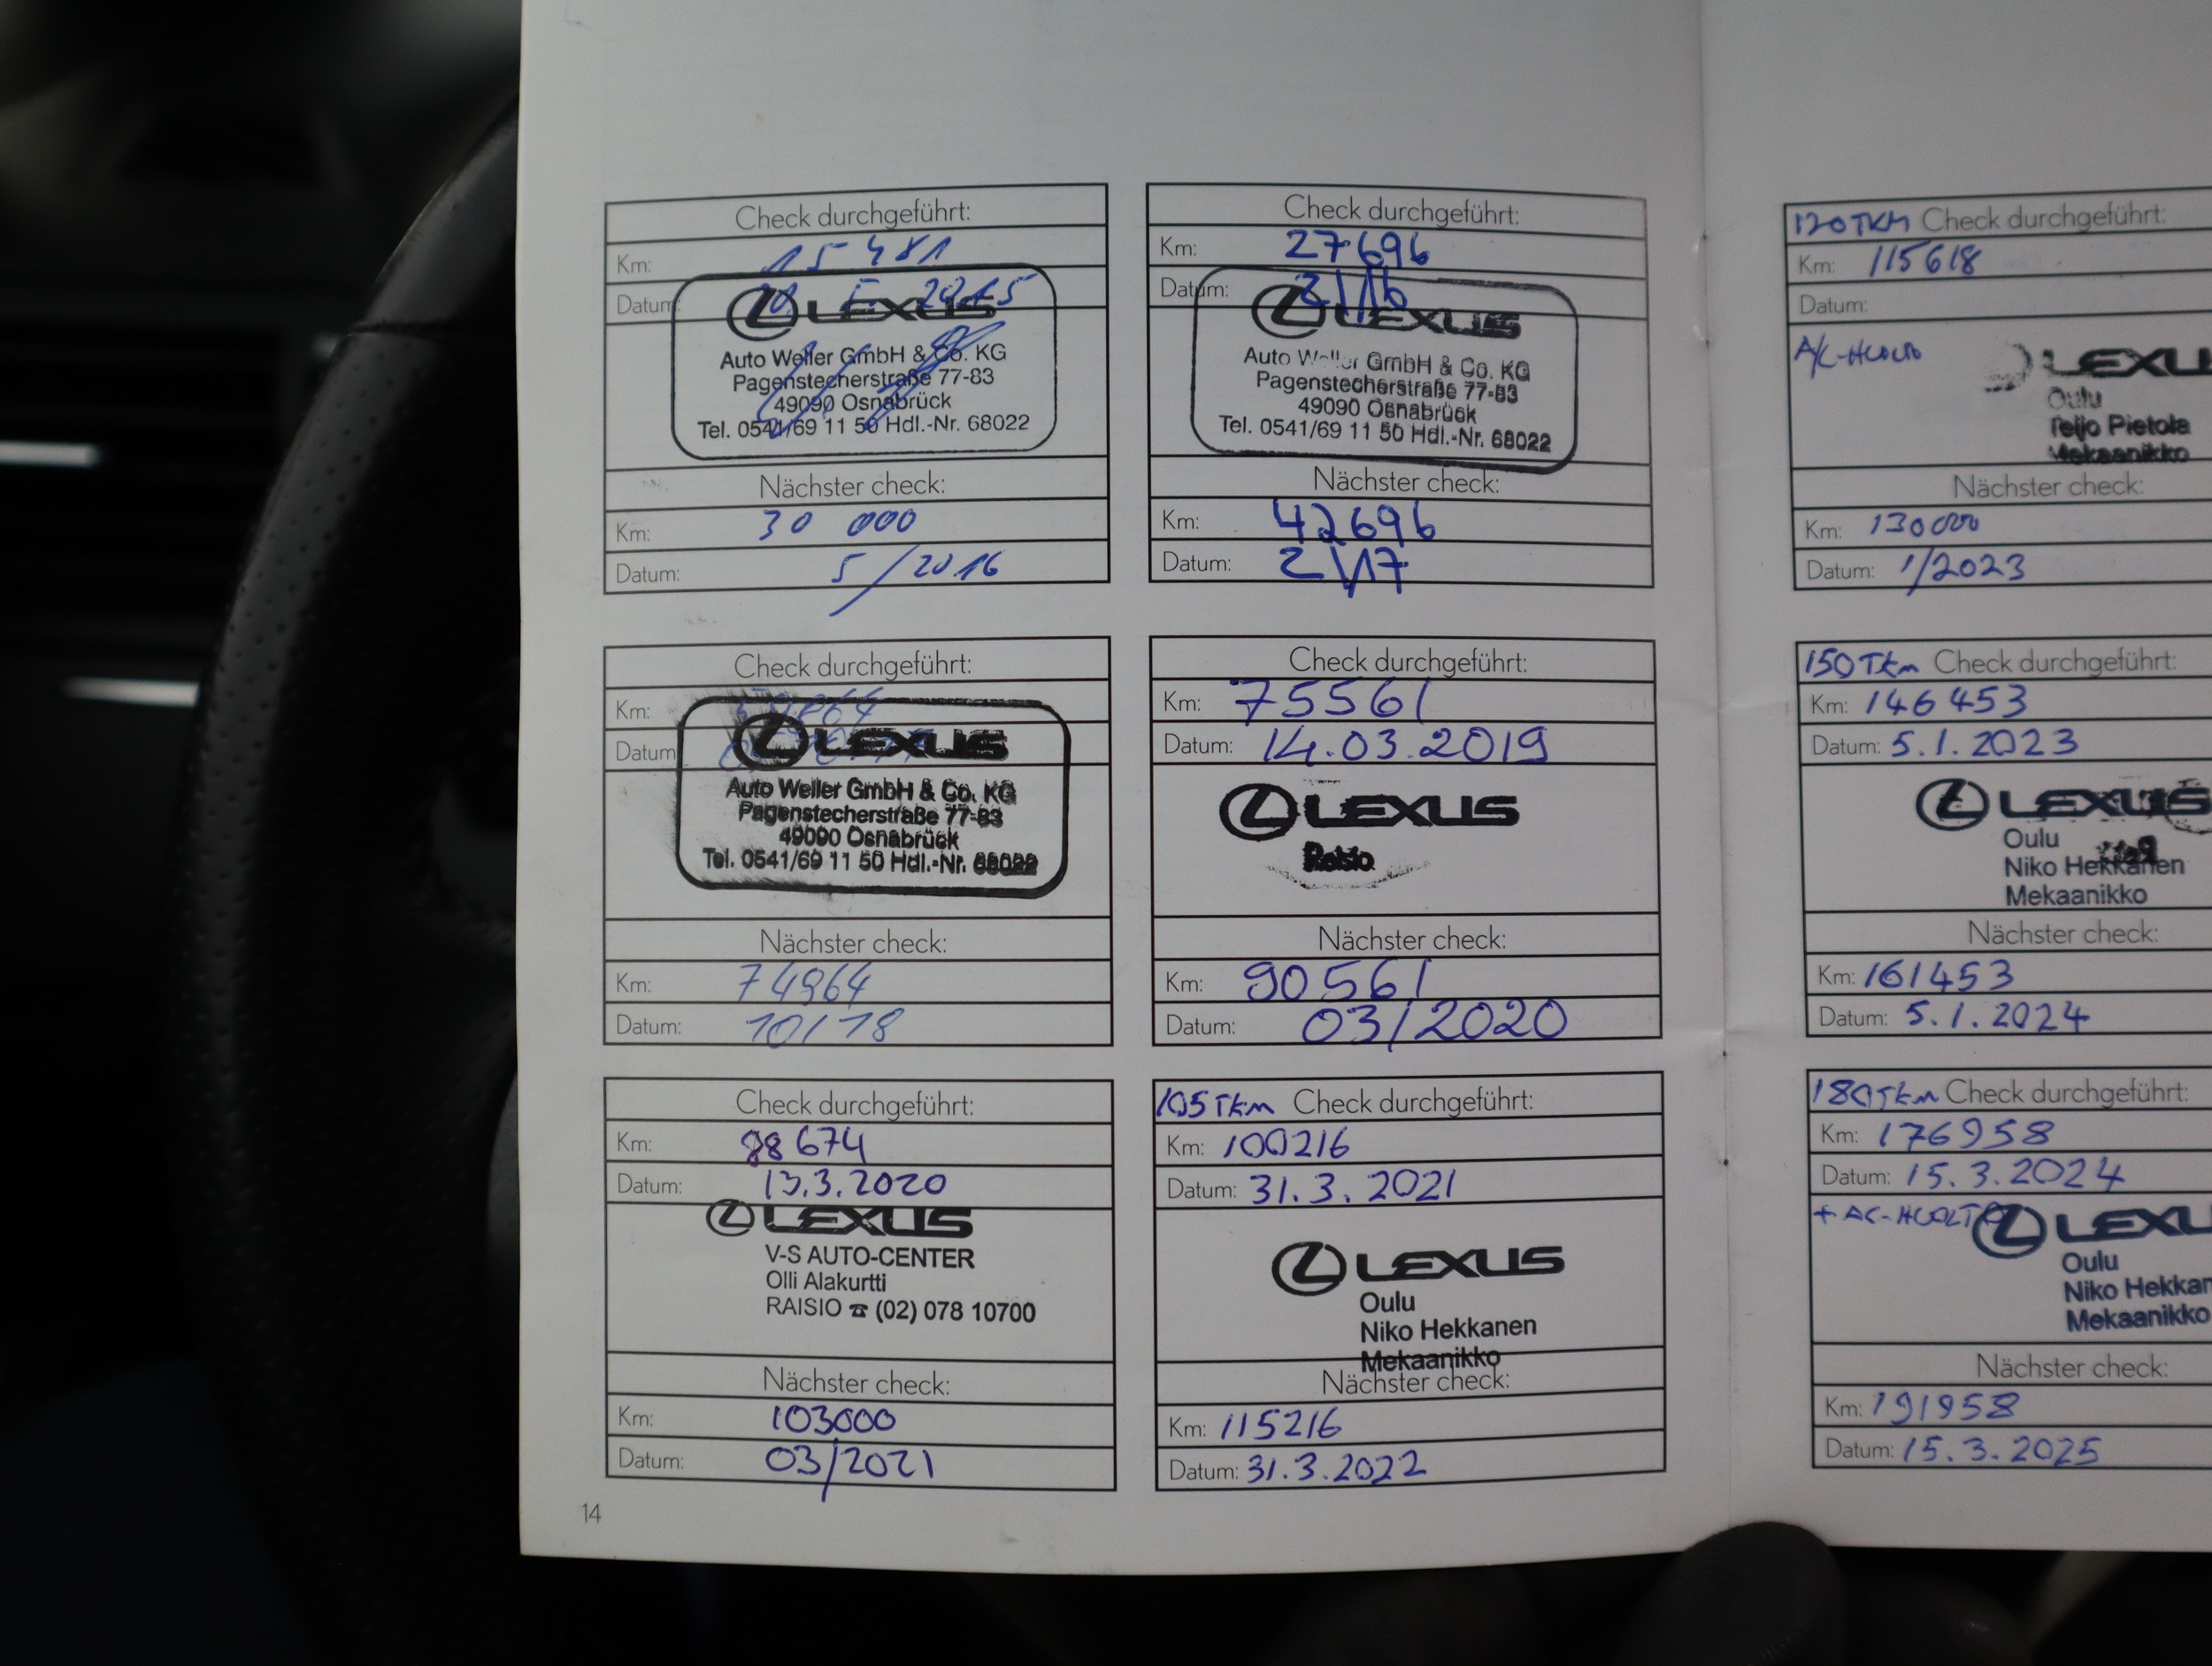 Check durchgeführt:
Km: 15 481
Datum: 2015
LEXUS
Auto Weller GmbH & Co. KG
Pagenstecherstraße 77-83
49090 Osnabrück
Tel. 0541/69 11 50 Hdl.-Nr. 68022
Nächster check:
Km: 30 000
Datum: 5/2016
Check durchgeführt:
Km: 27696
Datum: 2/16
LEXUS
Auto Weller GmbH & Co. KG
Pagenstecherstraße 77-83
49090 Osnabrück
Tel. 0541/69 11 50 Hdl.-Nr. 68022
Nächster check:
Km: 42696
Datum: 2/17
Check durchgeführt:
Km:
Datum
LEXUS
Auto Weller GmbH & Co. KG
Pagenstecherstraße 77-83
49090 Osnabrück
Tel. 0541/69 11 50 Hdl.-Nr. 68022
Nächster check:
Km: 74964
Datum: 10/18
Check durchgeführt:
Km: 75561
Datum: 14.03.2019
LEXUS
Raisio
Nächster check:
Km: 90561
Datum: 03/2020
Check durchgeführt:
Km: 88674
Datum: 13.3.2020
LEXUS
V-S AUTO-CENTER
Olli Alakurtti
RAISIO ☎ (02) 078 10700
Nächster check:
Km: 103000
Datum: 03/2021
105 Tkm Check durchgeführt:
Km: 100216
Datum: 31.3.2021
LEXUS
Oulu
Niko Hekkanen
Mekaanikko
Nächster check:
Km: 115216
Datum: 31.3.2022
14
120 TKM Check durchgeführt:
Km: 115618
Datum:
A/C-HUOLTO
LEXU
Oulu
Teijo Pietola
Mekaanikko
Nächster check:
Km: 130000
Datum: 1/2023
150 Tkm Check durchgeführt:
Km: 146453
Datum: 5.1.2023
LEXUS
Oulu
Niko Hekkanen
Mekaanikko
Nächster check:
Km: 161453
Datum: 5.1.2024
180 Tkm Check durchgeführt:
Km: 176958
Datum: 15.3.2024
+ AC-HUOLTO
LEXU
Oulu
Niko Hekkan
Mekaanikko
Nächster check:
Km: 191958
Datum: 15.3.2025